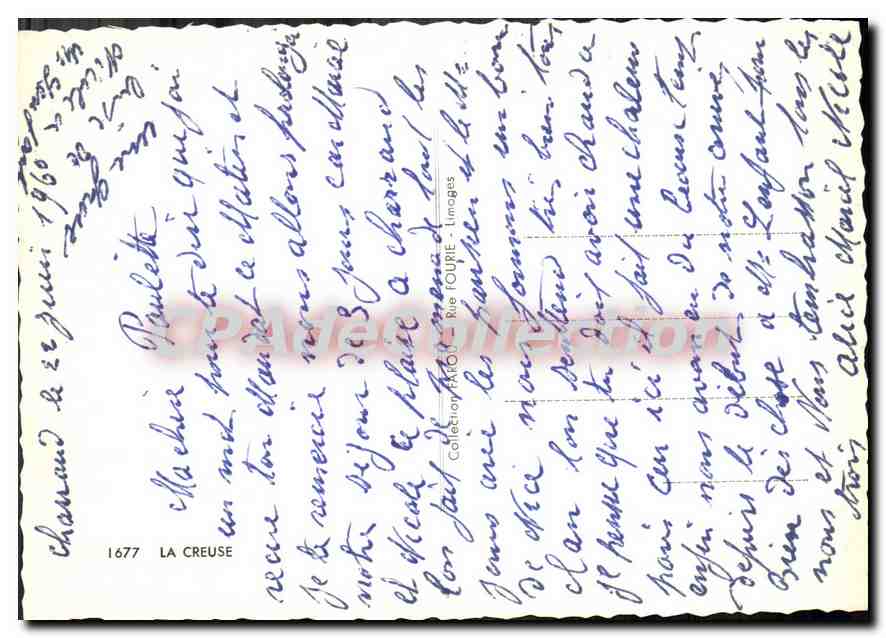 charraud le 22 juin 1960
Ma chère Paulette
un mot pour te dire que j'ai
recue ton Mandat ce Matin et
je te remercie nous allons prolonger
notre séjour de 8 jours car Marcel
et Nicole se plaise a charraud
ton fait de promenade tout les
jours avec les et le Mr
de Nice nous sommes un bon
clan ton s'entend très bien tous
je pense que tu doit avoir chaud a
paris car ici il fait une chaleur
enfin nous avons eu du beau temps
depuis le débuts de notre
bien des chose a Mr Lenfant pour
nous et Nous t'embrasson tous les
trois alice Marcel Nicole
1677 LA CREUSE
Collection FAROU - Rue FOURIE - Limoges
CPAdeCollection